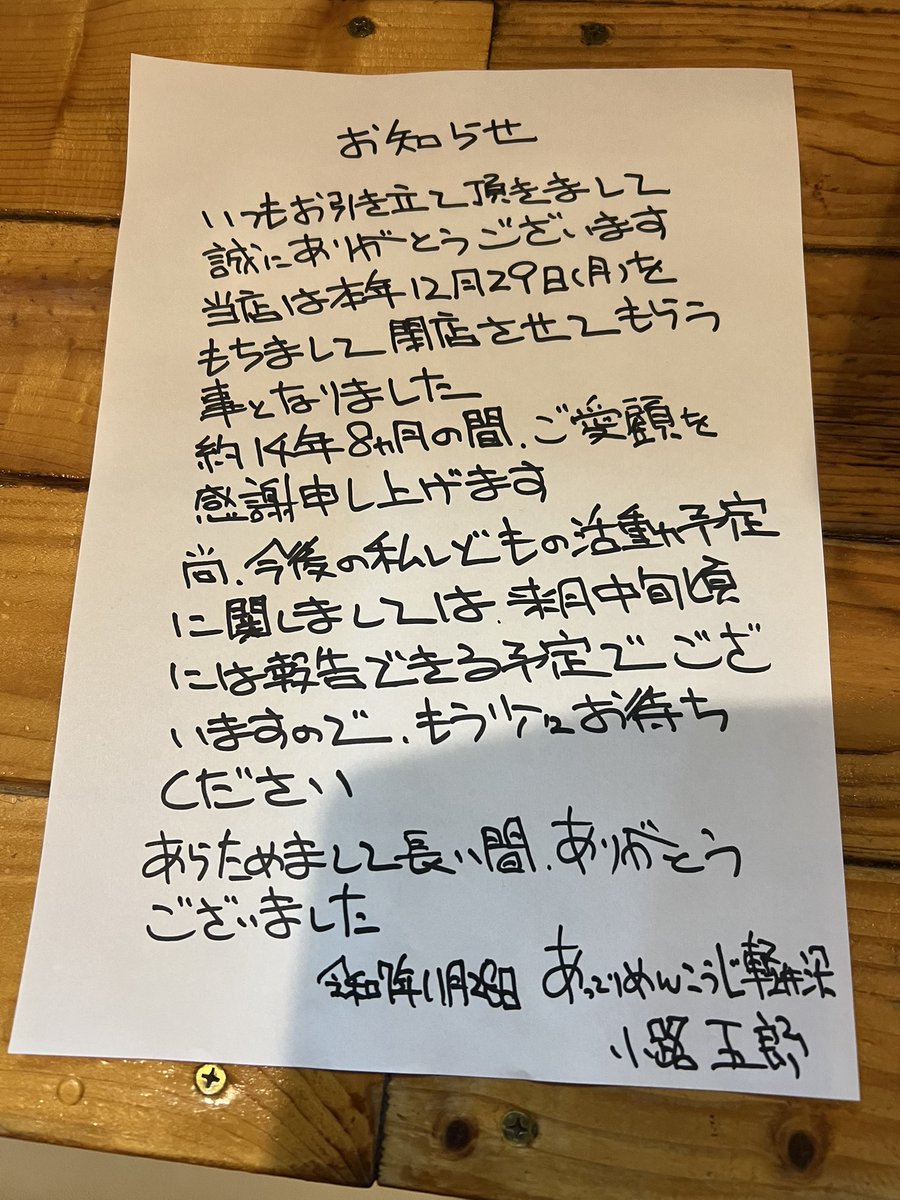 お知らせ
いつもお引き立て頂きまして
誠にありがとうございます
当店は本年12月29日(月)を
もちまして閉店させてもらう
事となりました
約14年8ヵ月の間、ご愛顧を
感謝申し上げます
尚、今後の私しどもの活動予定
に関しましては、来月中旬頃
には報告できる予定でござ
いますので、もう少しお待ち
ください
あらためまして長い間、ありがとう
ございました
令和7年11月28日 あってりめんこうじ軽井沢
小路 五郎